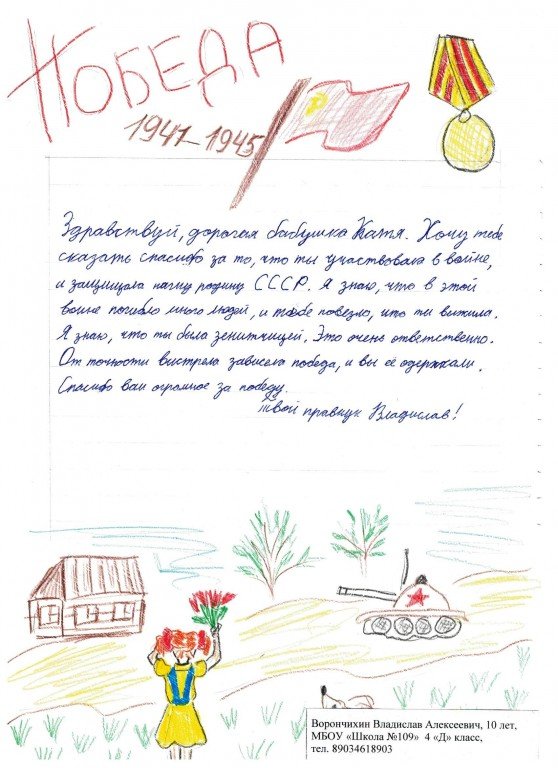 ПОБЕДА
1941-1945
Здравствуй, дорогая бабушка Катя. Хочу тебе
сказать спасибо за то, что ты участвовала в войне,
и защищала нашу родину СССР. Я знаю, что в этой
войне погибло много людей, и тебе повезло, что ты выжила.
Я знаю, что ты была зенитчицей. Это очень ответственно.
От точности выстрела зависела победа, и вы её одержали.
Спасибо вам огромное за победу.
Твой правнук Владислав!
Ворончихин Владислав Алексеевич, 10 лет,
МБОУ «Школа №109» 4 «Д» класс,
тел. 89034618903